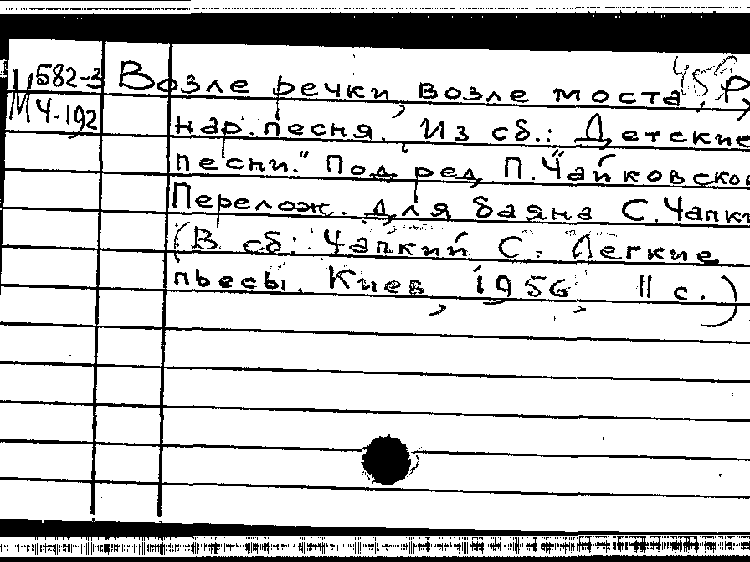 М582-3
М4-192
Возле речки, возле моста. Р.
нар. песня. Из сб.: "Детские
песни." Под ред. П. Чайковског
Перелож. для баяна С. Чапки
(В сб.: Чапкий С. Легкие
пьесы. Киев, 1956, 11 с.)